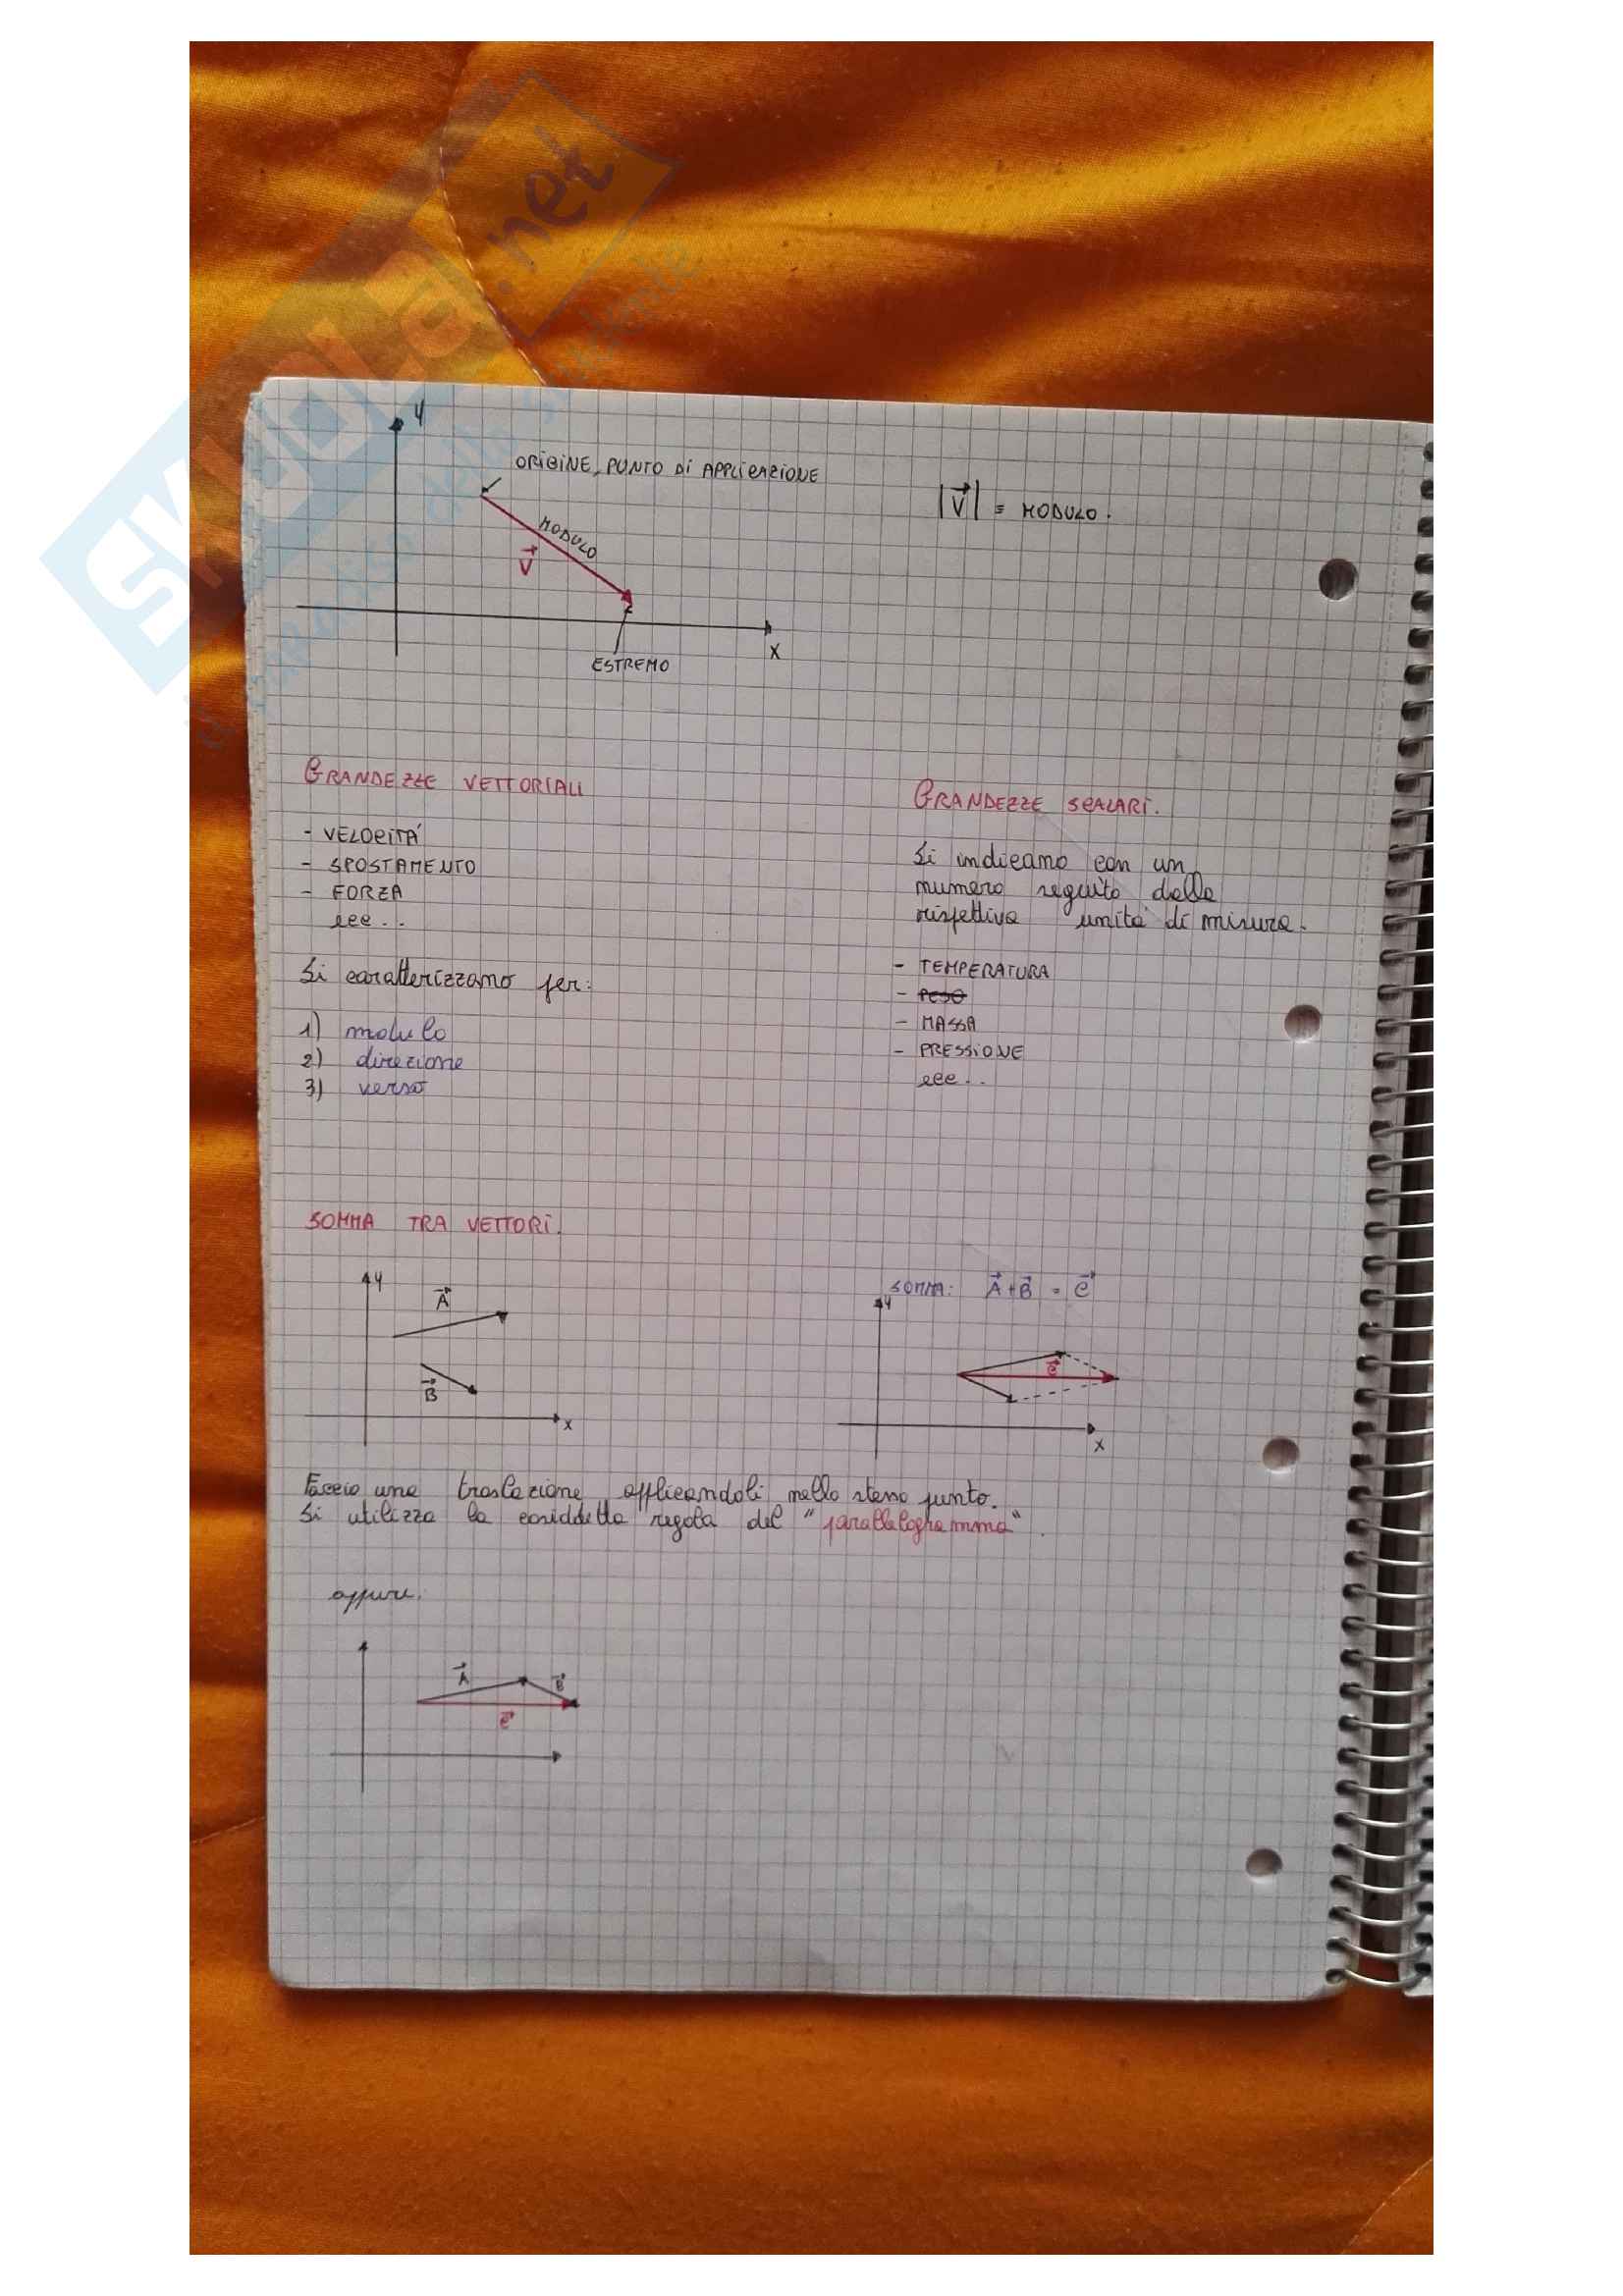 SKUOLA.net
il paradiso dello studente
y
ORIGINE, PUNTO Di APPLICAZIONE
|V⃗| = MODULO.
MODULO
V⃗
x
ESTREMO
GRANDEZZE VETTORIALI
- VELOCITÁ
- SPOSTAMENTO
- FORZA
ecc..
Si caratterizzano per:
1) modulo
2) direzione
3) verso
GRANDEZZE SCALARi.
Si indicano con un
numero seguito dalla
rispettiva unità di misura.
- TEMPERATURA
- PESO
- MASSA
- PRESSiONE
ecc..
SOMMA TRA VETTORi.
y
A⃗
B⃗
x
SOMMA: A⃗ + B⃗ = C⃗
y
C⃗
x
Faccio una traslazione applicandoli nello stesso punto.
Si utilizza la cosiddetta regola del "parallelogramma".
oppure:
A⃗
B⃗
C⃗